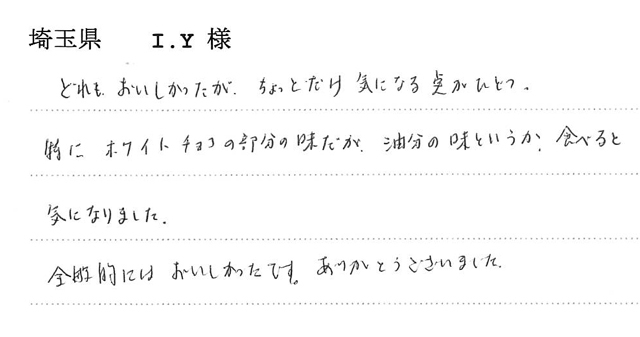 埼玉県 I.Y 様
どれも おいしかったが、ちょっとだけ 気になる 点が ひとつ。
特に ホワイトチョコの部分の味だが、油分の味というか、食べると
気になりました。
全般的には おいしかったです。ありがとうございました。